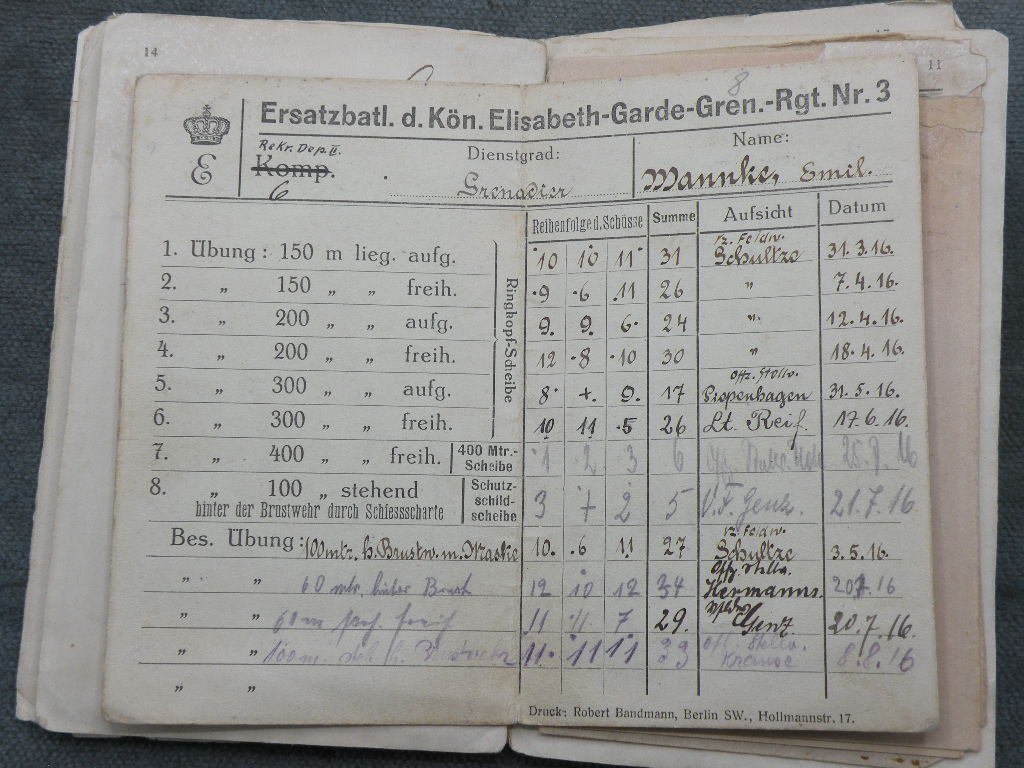 14
11
8
Ersatzbatl. d. Kön. Elisabeth-Garde-Gren.-Rgt. Nr. 3
E
Rekr. Dep. II.
Komp.
6
Dienstgrad:
Grenadier
Name:
Mannke, Emil.
Reihenfolge d. Schüsse Summe Aufsicht Datum
1. Übung: 150 m lieg. aufg. 10 10 11 31 Vz. Feldw. Schultze 31.3.16.
2. „ 150 „ „ freih. 9 6 11 26 „ 7.4.16.
3. „ 200 „ „ aufg. 9. 9. 6. 24 „ 12.4.16.
4. „ 200 „ „ freih. 12 8 10 30 „ 18.4.16.
5. „ 300 „ „ aufg. 8 +. 9. 17 Offz. Stellv. Piepenhagen 31.5.16.
6. „ 300 „ „ freih. 10 11 5 26 Lt. Reif. 17.6.16.
Ringkopf-Scheibe
7. „ 400 „ „ freih. 400 Mtr.-Scheibe 1 2 3 6 16
8. „ 100 „ stehend
hinter der Brustwehr durch Schiessscharte
Schutz-schild-scheibe 3 + 2 5 V.F. Genz. 21.7.16
Bes. Übung: 100 mtr. h. Brustw. m. Maske 10. 6 11 27 Vz. Feldw. Schultze 3.5.16.
„ „ 60 mtr. hinter Brust 12 10 12 34 Off. Stellv. Hermanns. 16
„ „ 60 m freih 11 11 7 29. Genz 20.7.16.
„ „ 100 m. h. 11. 11 11 33 Off. Stellv. Krause 8.8.16
„ „
Druck: Robert Bandmann, Berlin SW., Hollmannstr. 17.